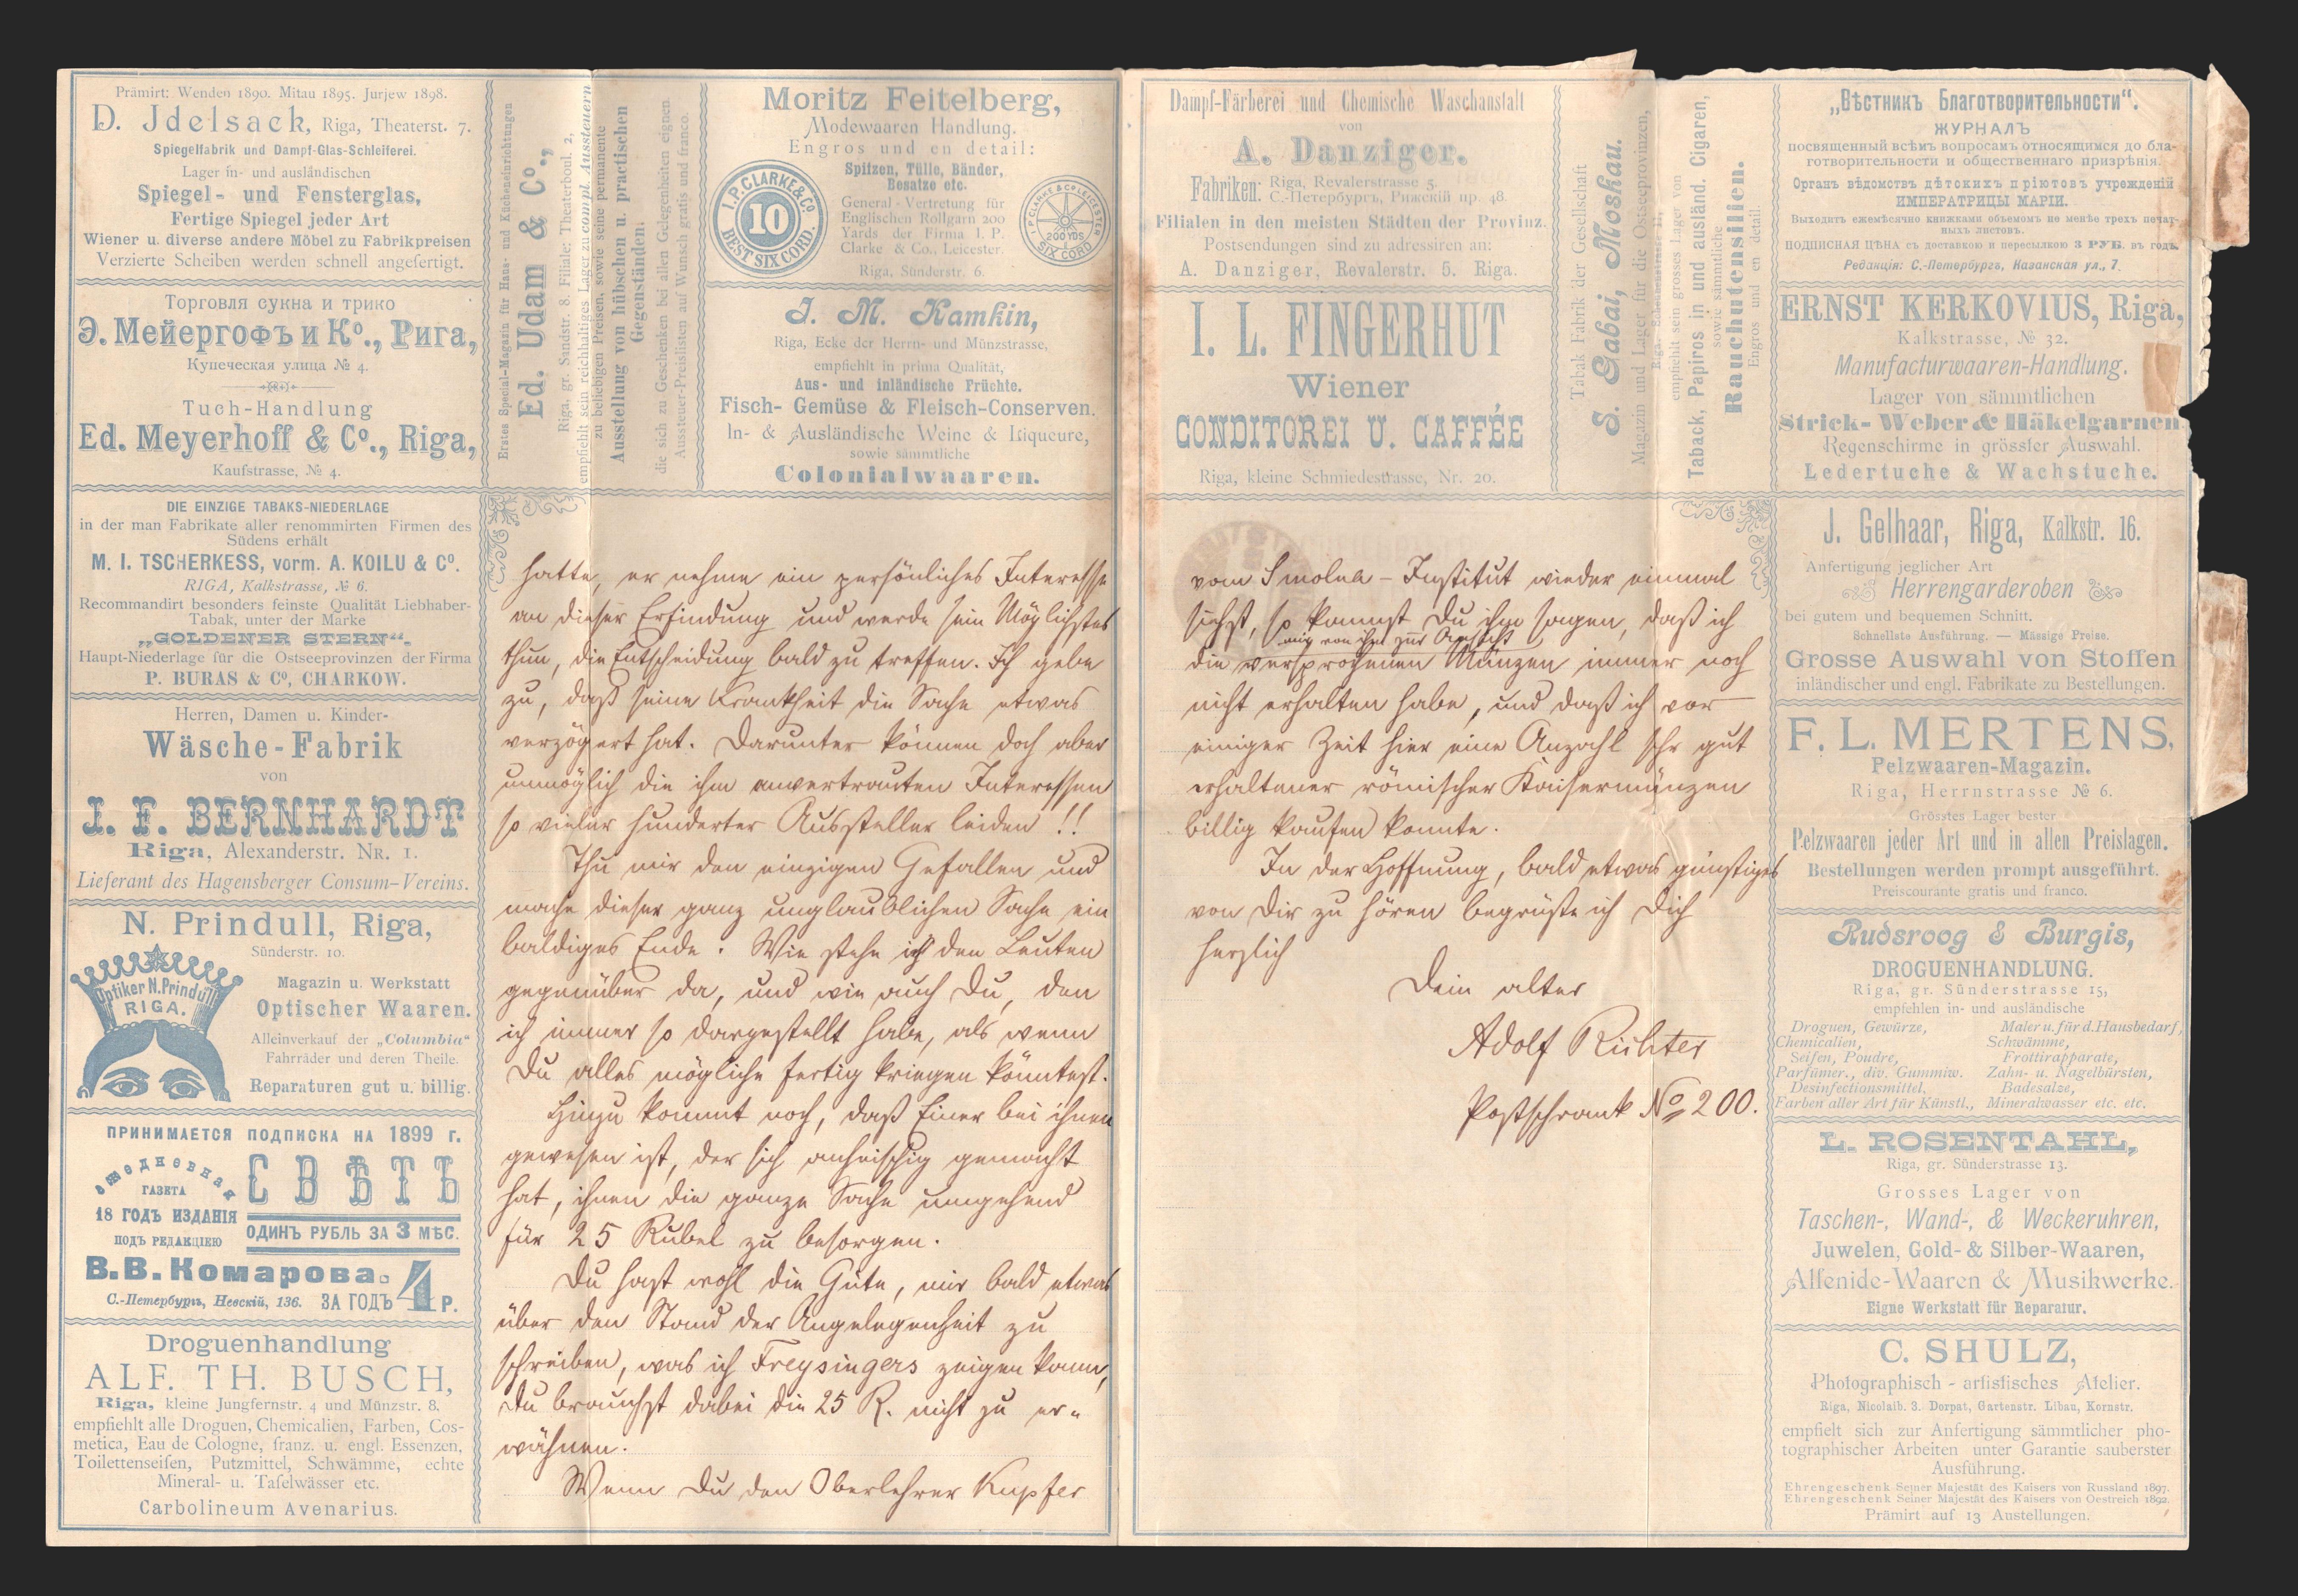 Prämirt: Wenden 1890. Mitau 1895. Jurjew 1898.
D. Jdelsack, Riga, Theaterst. 7.
Spiegelfabrik und Dampf-Glas-Schleiferei.
Lager in- und ausländischen
Spiegel- und Fensterglas,
Fertige Spiegel jeder Art
Wiener u. diverse andere Möbel zu Fabrikpreisen
Verzierte Scheiben werden schnell angefertigt.
Торговля сукна и трико
Э. Мейергофъ и Ко., Рига,
Купеческая улица № 4.
Tuch-Handlung
Ed. Meyerhoff & Co., Riga,
Kaufstrasse, № 4.
DIE EINZIGE TABAKS-NIEDERLAGE
in der man Fabrikate aller renommirten Firmen des
Südens erhält
M. I. TSCHERKESS, vorm. A. KOILU & Co.
RIGA, Kalkstrasse, № 6.
Recommandirt besonders feinste Qualität Liebhaber-
Tabak, unter der Marke
„GOLDENER STERN“.
Haupt-Niederlage für die Ostseeprovinzen der Firma
P. BURAS & Co, CHARKOW.
Herren, Damen u. Kinder-
Wäsche-Fabrik
von
I. F. BERNHARDT
Riga, Alexanderstr. NR. 1.
Lieferant des Hagensberger Consum-Vereins.
N. Prindull, Riga,
Sünderstr. 10.
Optiker N. Prindull
RIGA.
Magazin u. Werkstatt
Optischer Waaren.
Alleinverkauf der „Columbia“
Fahrräder und deren Theile.
Reparaturen gut u. billig.
ПРИНИМАЕТСЯ ПОДПИСКА НА 1899 г.
ежедневная
ГАЗЕТА
СВѢТЪ
18 ГОДЪ ИЗДАНІЯ
ПОДЪ РЕДАКЦІЕЮ
ОДИНЪ РУБЛЬ ЗА 3 МѢС.
В. В. Комарова.
С.-Петербургъ, Невскій, 136. ЗА ГОДЪ 4 Р.
Droguenhandlung
ALF. TH. BUSCH,
Riga, kleine Jungfernstr. 4 und Münzstr. 8.
empfiehlt alle Droguen, Chemicalien, Farben, Cos-
metica, Eau de Cologne, franz. u. engl. Essenzen,
Toilettenseifen, Putzmittel, Schwämme, echte
Mineral- u. Tafelwässer etc.
Carbolineum Avenarius.
Erstes Special-Magazin für Haus- und Kücheneinrichtungen
Ed. Udam & Co.,
Riga, gr. Sandstr. 8. Filiale: Theaterboul. 2,
empfiehlt sein reichhaltiges Lager zu compl. Aussteuern
zu beliebigen Preisen, sowie seine permanente
Ausstellung von hübschen u. practischen
Gegenständen,
die sich zu Geschenken bei allen Gelegenheiten eignen.
Aussteuer-Preislisten auf Wunsch gratis und franco.
Moritz Feitelberg,
Modewaaren Handlung.
Engros und en detail:
Spitzen, Tülle, Bänder,
Besatze etc.
General-Vertretung für
Englischen Rollgarn 200
Yards der Firma I. P.
Clarke & Co., Leicester.
Riga, Sünderstr. 6.
I. P. CLARKE & Co
10
BEST SIX CORD.
I. P. CLARKE & Co LEICESTER
200 YDS
SIX CORD
J. M. Kamkin,
Riga, Ecke der Herrn- und Münzstrasse,
empfiehlt in prima Qualität,
Aus- und inländische Früchte.
Fisch- Gemüse & Fleisch-Conserven.
In- & Ausländische Weine & Liqueure,
sowie sämmtliche
Colonialwaaren.
hatte, er nehme ein persönliches Interesse
an dieser Erfindung und werde sein Möglichstes
thun, die Entscheidung bald zu treffen. Ich gebe
zu, daß seine Krankheit die Sache etwas
verzögert hat. Darunter können doch aber
unmöglich die ihm anvertrauten Interessen
so vieler hunderter Aussteller leiden!!
Thu mir den einzigen Gefallen und
mache dieser ganz unglaublichen Sache ein
baldiges Ende. Wie stehe ich den Leuten
gegenüber da, und wie auch Du, den
ich immer so dargestellt habe, als wenn
Du alles mögliche fertig kriegen könntest.
Hinzu kommt noch, daß Einer bei ihnen
gewesen ist, der sich anheischig gemacht
hat, ihnen die ganze Sache umgehend
für 25 Rubel zu besorgen.
Du hast wohl die Güte, mir bald etwas
über den Stand der Angelegenheit zu
schreiben, was ich Freysingers zeigen kann,
Du brauchst dabei die 25 R. nicht zu er-
wähnen.
Wenn Du den Oberlehrer Kupfer
Dampf-Färberei und Chemische Waschanstalt
von
A. Danziger.
Fabriken: Riga, Revalerstrasse 5.
С.-Петербургъ, Рижскій пр. 48.
Filialen in den meisten Städten der Provinz.
Postsendungen sind zu adressiren an:
A. Danziger, Revalerstr. 5. Riga.
I. L. FINGERHUT
Wiener
CONDITOREI U. CAFFÉE
Riga, kleine Schmiedestrasse, Nr. 20.
Tabak Fabrik der Gesellschaft
S. Gabai, Moskau.
Magazin und Lager für die Ostseeprovinzen,
empfiehlt sein grosses Lager von
Taback, Papiros in und ausländ. Cigaren,
sowie sämmtliche
Rauchutensilien.
Engros und en detail.
vom Smolna-Institut wieder einmal
siehst, so kannst Du ihm sagen, daß ich
mir von ihm zur Ansicht
die versprochenen Münzen immer noch
nicht erhalten habe, und daß ich vor
einiger Zeit hier eine Anzahl sehr gut
erhaltener römischer Kaisermünzen
billig kaufen konnte.
In der Hoffnung, bald etwas günstiges
von Dir zu hören begrüße ich Dich
herzlich
Dein alter
Adolf Richter
Postschrank No 200.
„Вѣстникъ Благотворительности“.
ЖУРНАЛЪ
посвященный всѣмъ вопросамъ относящимся до бла-
готворительности и общественнаго призрѣнія.
Органъ вѣдомствъ дѣтскихъ пріютовъ учрежденій
ИМПЕРАТРИЦЫ МАРІИ.
Выходитъ ежемѣсячно книжками объемомъ не менѣе трехъ печат-
ныхъ листовъ.
ПОДПИСНАЯ ЦѢНА съ доставкою и пересылкою 3 РУБ. въ годъ.
Редакція: С.-Петербургъ, Казанская ул., 7.
ERNST KERKOVIUS, Riga,
Kalkstrasse, № 32.
Manufacturwaaren-Handlung.
Lager von sämmtlichen
Strick- Weber & Häkelgarnen.
Regenschirme in grösster Auswahl.
Ledertuche & Wachstuche.
J. Gelhaar, Riga, Kalkstr. 16.
Anfertigung jeglicher Art
Herrengarderoben
bei gutem und bequemen Schnitt.
Schnellste Ausführung. — Mässige Preise.
Grosse Auswahl von Stoffen
inländischer und engl. Fabrikate zu Bestellungen.
F. L. MERTENS,
Pelzwaaren-Magazin.
Riga, Herrnstrasse № 6.
Grösstes Lager bester
Pelzwaaren jeder Art und in allen Preislagen.
Bestellungen werden prompt ausgeführt.
Preiscourante gratis und franco.
Rudsroog & Burgis,
DROGUENHANDLUNG.
Riga, gr. Sünderstrasse 15,
empfehlen in- und ausländische
Droguen, Gewürze, Maler u. für d. Hausbedarf,
Chemicalien, Schwämme,
Seifen, Poudre, Frottirapparate,
Parfümer., div. Gummiw. Zahn- u. Nagelbürsten,
Desinfectionsmittel, Badesalze,
Farben aller Art für Künstl., Mineralwasser etc. etc.
L. ROSENTAHL,
Riga, gr. Sünderstrasse 13.
Grosses Lager von
Taschen-, Wand-, & Weckeruhren,
Juwelen, Gold- & Silber-Waaren,
Alfenide-Waaren & Musikwerke.
Eigne Werkstatt für Reparatur.
C. SHULZ,
Photographisch - artistisches Atelier.
Riga, Nicolaib. 3. Dorpat, Gartenstr. Libau, Kornstr.
empfielt sich zur Anfertigung sämmtlicher pho-
tographischer Arbeiten unter Garantie sauberster
Ausführung.
Ehrengeschenk Seiner Majestät des Kaisers von Russland 1897.
Ehrengeschenk Seiner Majestät des Kaisers von Oestreich 1892.
Prämirt auf 13 Austellungen.